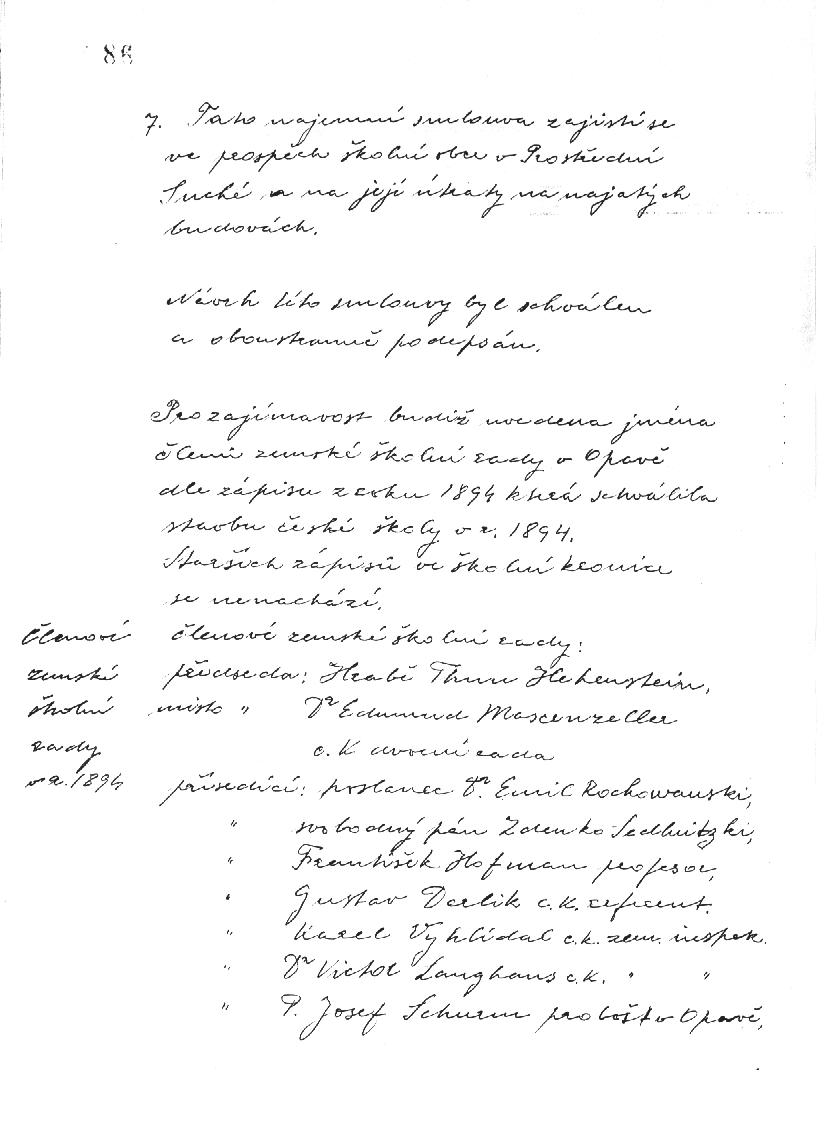 86
7. Tato najemní smlouva zajistí se
ve prospěch školní obce v Prostřední
Suché a na její útraty na najatých
budovách.
Návrh této smlouvy byl schválen
a oboustranně podepsán.
Pro zajímavost budiž uvedena jména
členů zemské školní rady v Opavě
dle zápisu z roku 1894 která schválila
stavbu české školy v r. 1894.
Starších zápisů ve školní kronice
se nenachází.
Členové
zemské
školní
rady
v r. 1894
Členové zemské školní rady:
předseda: Hrabě Thun Hohenstein,
místo " Dr Edmund
c. K dvorní rada
přísedící: poslanec Dr. Emil Rochowanski,
" svobodný pán Zdenko Sedlnitzki,
" František Hofman profesor,
" Gustav c.k. referent.
" Karel Vyhlídal c.k. zem. inspek.
" Dr Victor Langhans c.k. " "
" P. Josef Schurm probošt v Opavě,